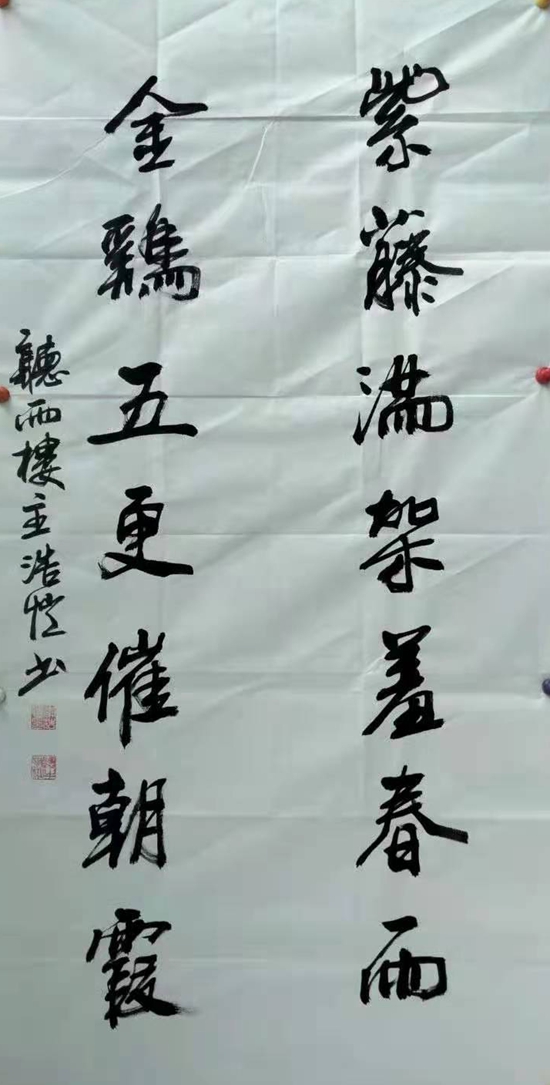 紫藤满架羞春雨
金鷄五更催朝霞
聽雨樓主浩愷书